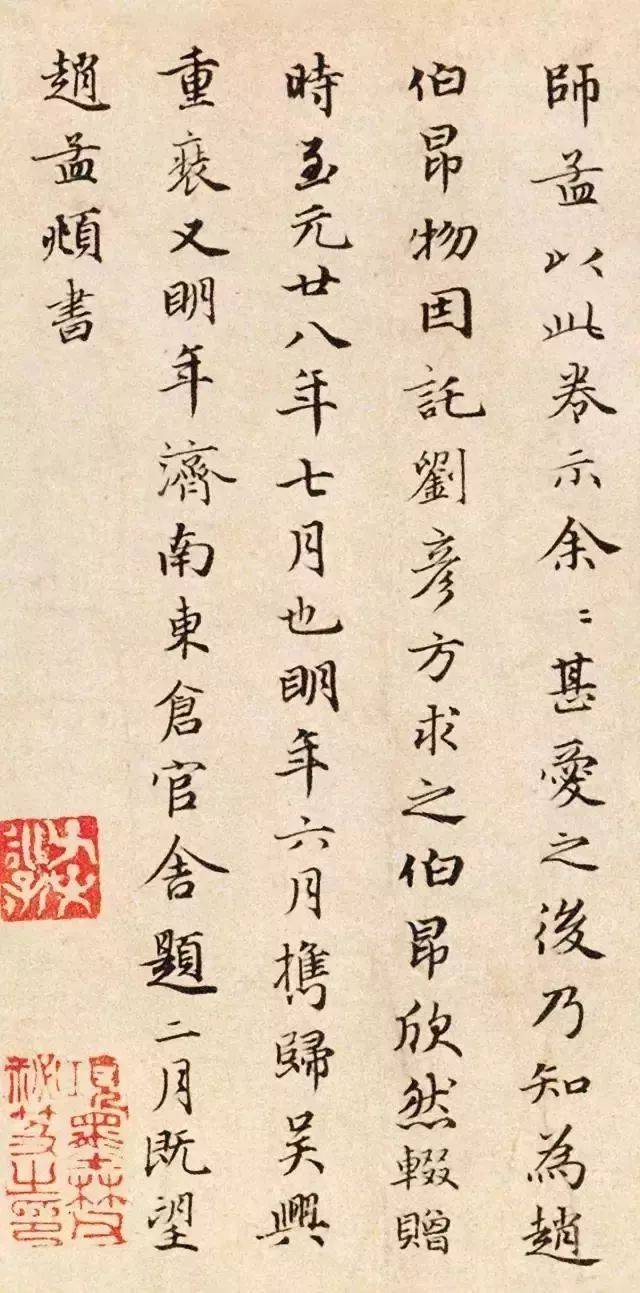 師孟以此卷示余〻甚愛之後乃知為趙
伯昂物因託劉彥方求之伯昂欣然輟贈
時至元廿八年七月也明年六月携歸吳興
重裝又明年濟南東倉官舍題二月既望
趙孟頫書
項墨林父
秘笈之印